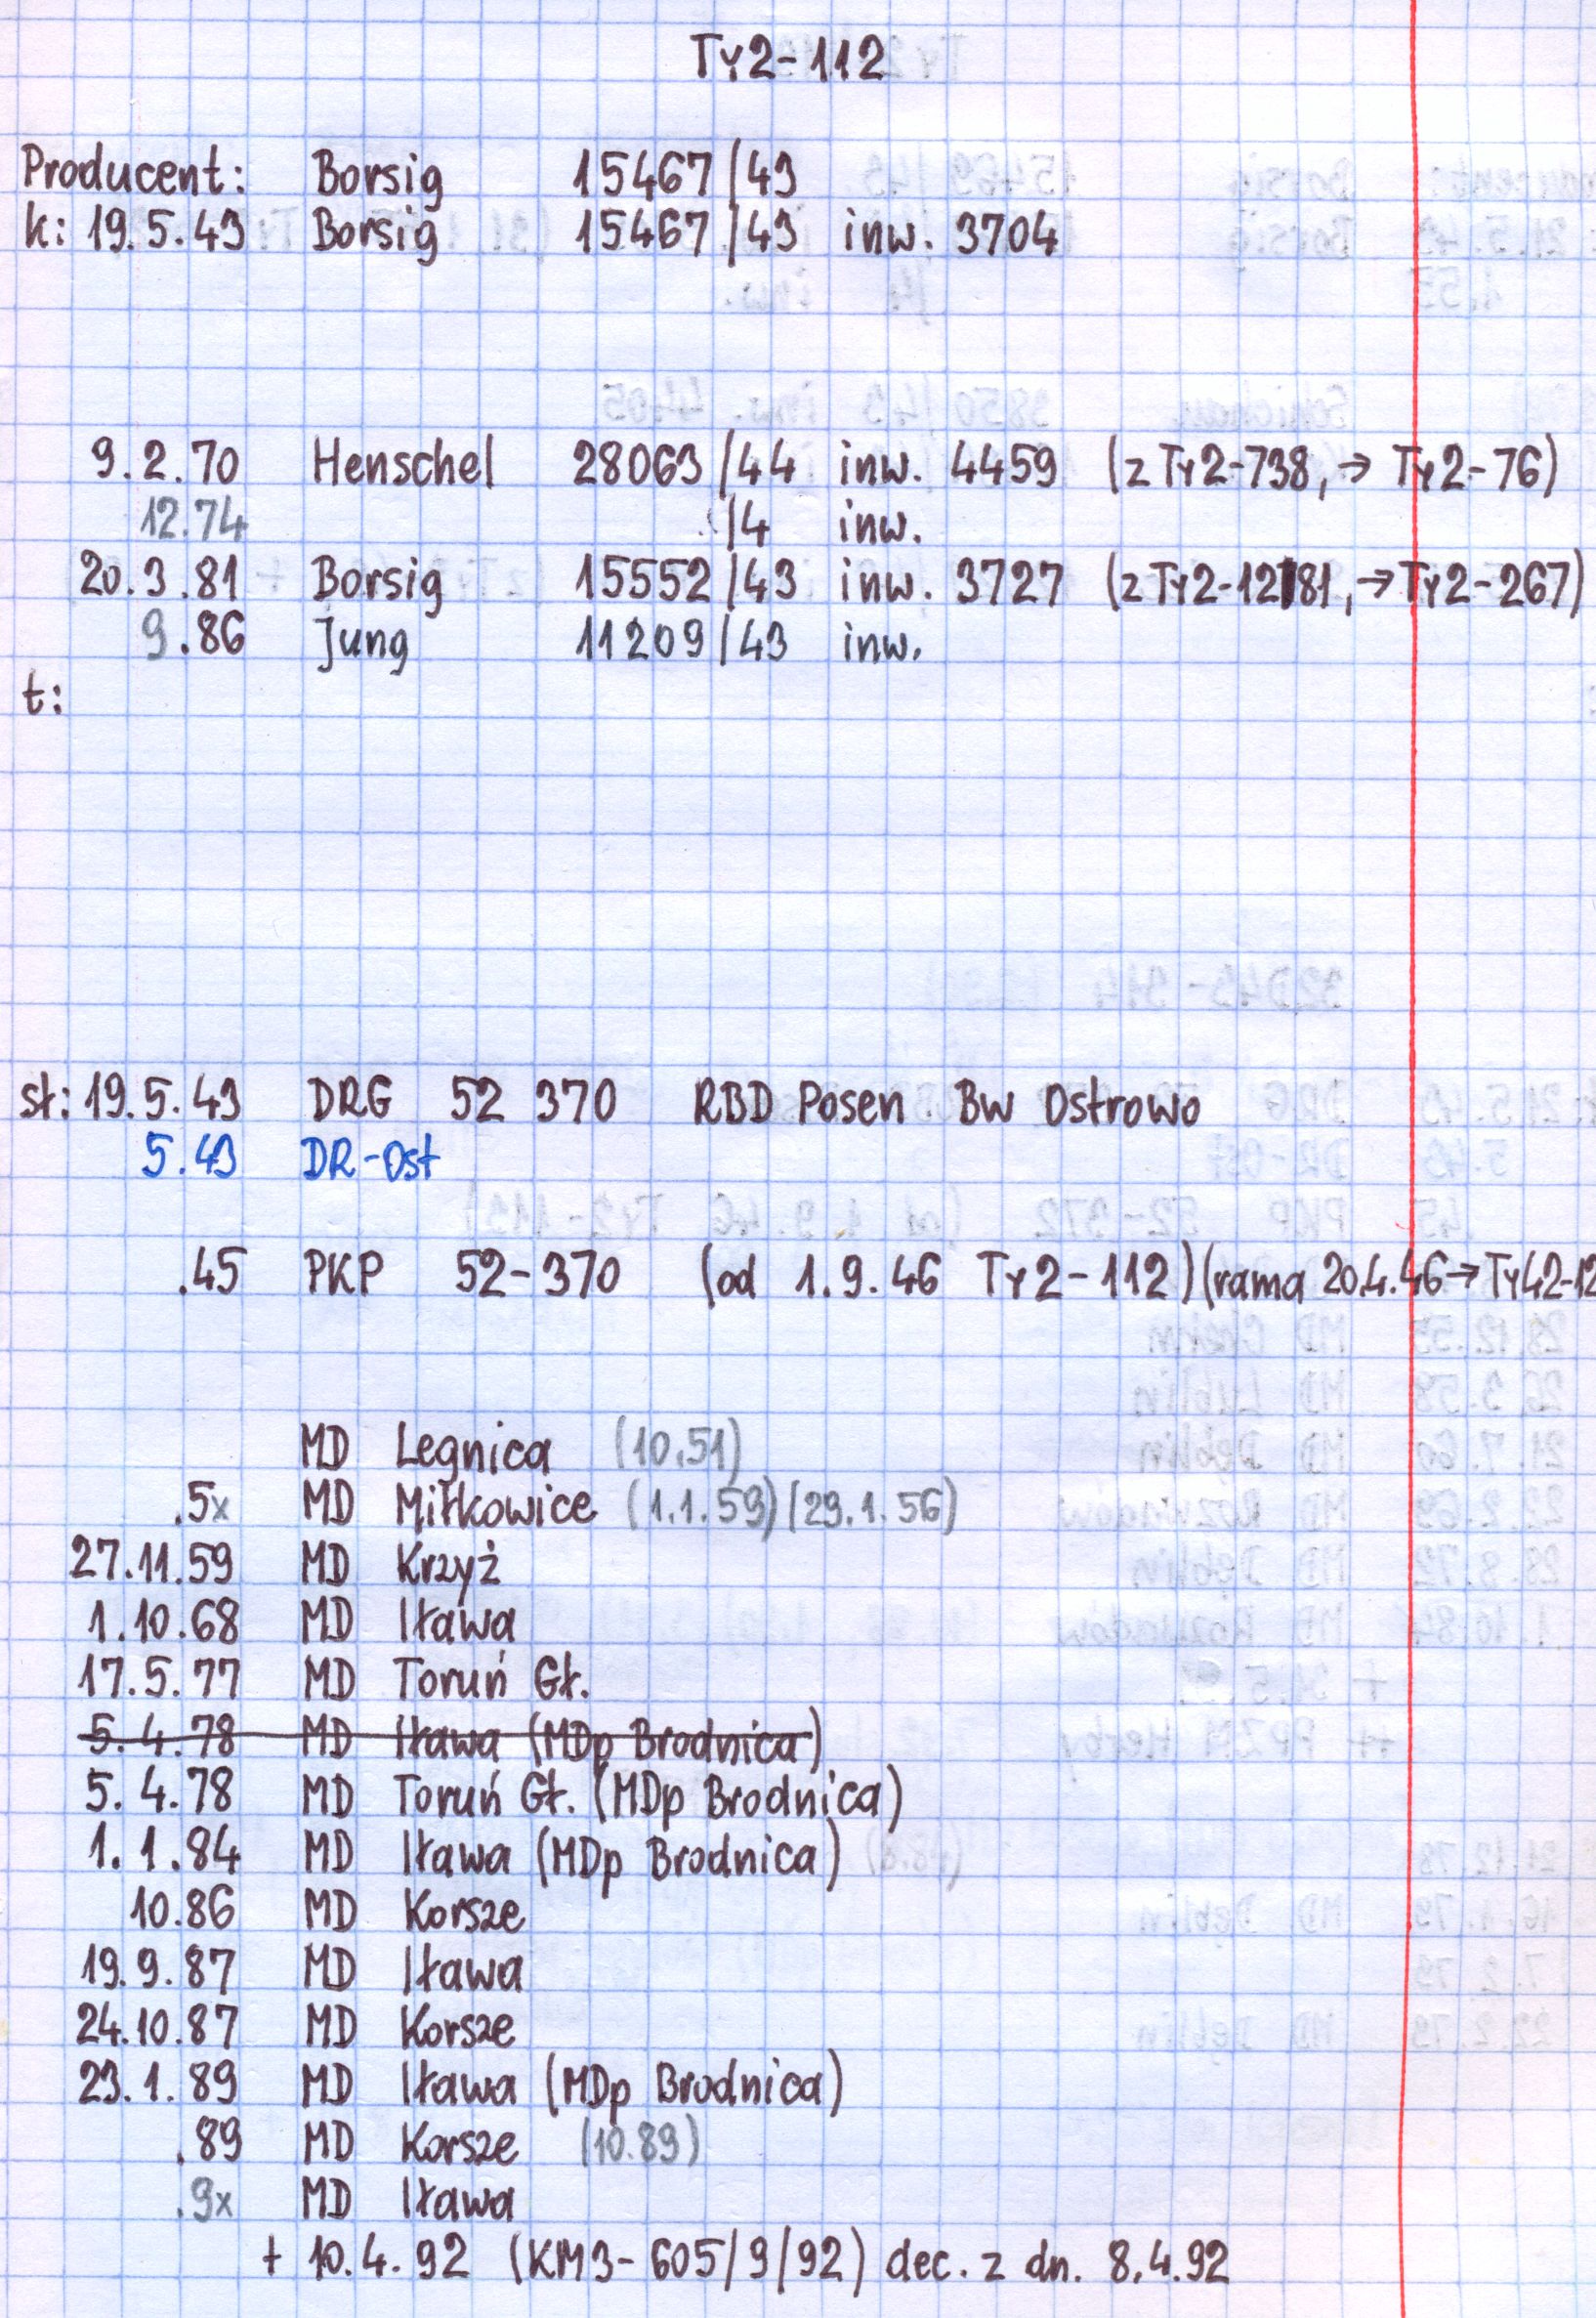 Ty2-112
Producent: Borsig 15467/43
k: 19.5.43 Borsig 15467/43 inw. 3704
9.2.70 Henschel 28063/44 inw. 4459 (z Ty2-738, → Ty2-76)
12.74 /4 inw.
20.3.81 Borsig 15552/43 inw. 3727 (z Ty2-1281, → Ty2-267)
9.86 Jung 11209/43 inw.
t:
st: 19.5.43 DRG 52 370 RBD Posen Bw Ostrowo
5.43 DR-Ost
.45 PKP 52-370 (od 1.9.46 Ty2-112) (rama 20.4.46 → Ty42-12
MD Legnica (10.51)
.5x MD Miłkowice (1.1.53) (29.1.56)
27.11.59 MD Krzyż
1.10.68 MD Iława
17.5.77 MD Toruń Gł.
5.4.78 MD Iława (MDp Brodnica)
5.4.78 MD Toruń Gł. (MDp Brodnica)
1.1.84 MD Iława (MDp Brodnica)
10.86 MD Korsze
19.9.87 MD Iława
24.10.87 MD Korsze
23.1.89 MD Iława (MDp Brodnica)
.89 MD Korsze (10.89)
.9x MD Iława
+ 10.4.92 (KM3-605/9/92) dec. z dn. 8.4.92